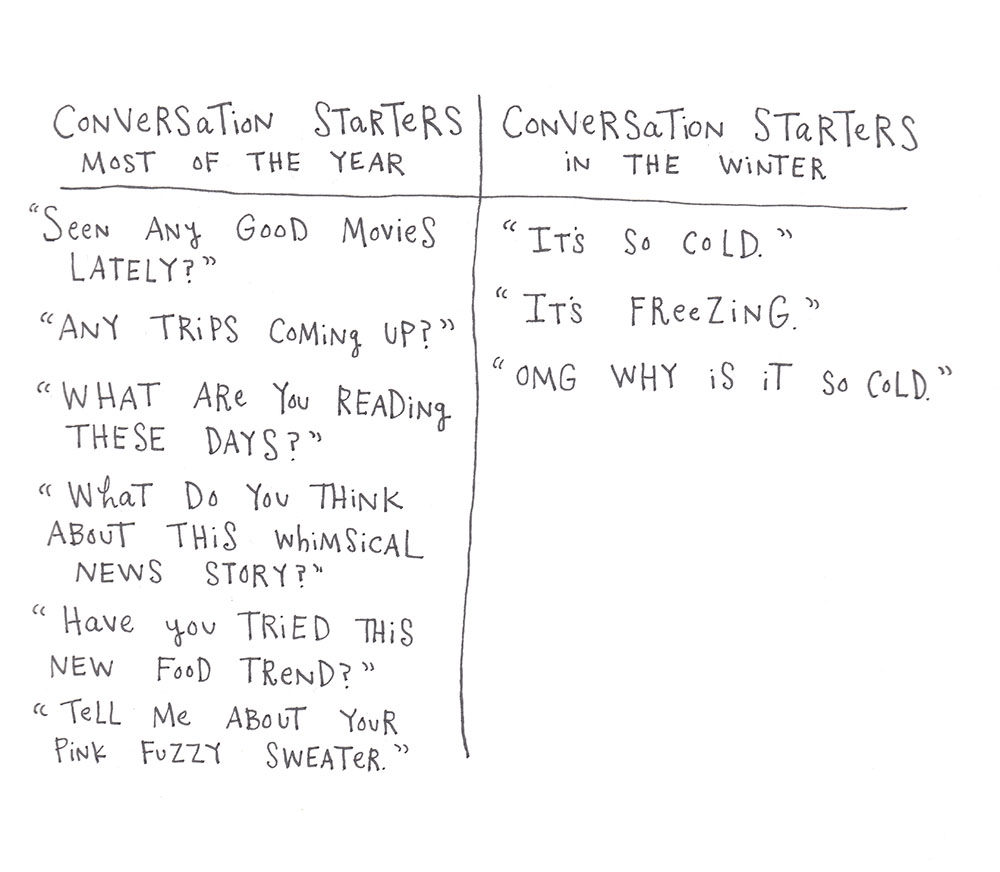 Conversation Starters
Most of the Year
"Seen any good movies
lately?"
"Any trips coming up?"
"What are you reading
these days?"
"What do you think
about this whimsical
news story?"
"Have you tried this
new food trend?"
"Tell me about your
pink fuzzy sweater."
Conversation Starters
in the Winter
"It's so cold."
"It's freezing."
"OMG why is it so cold."